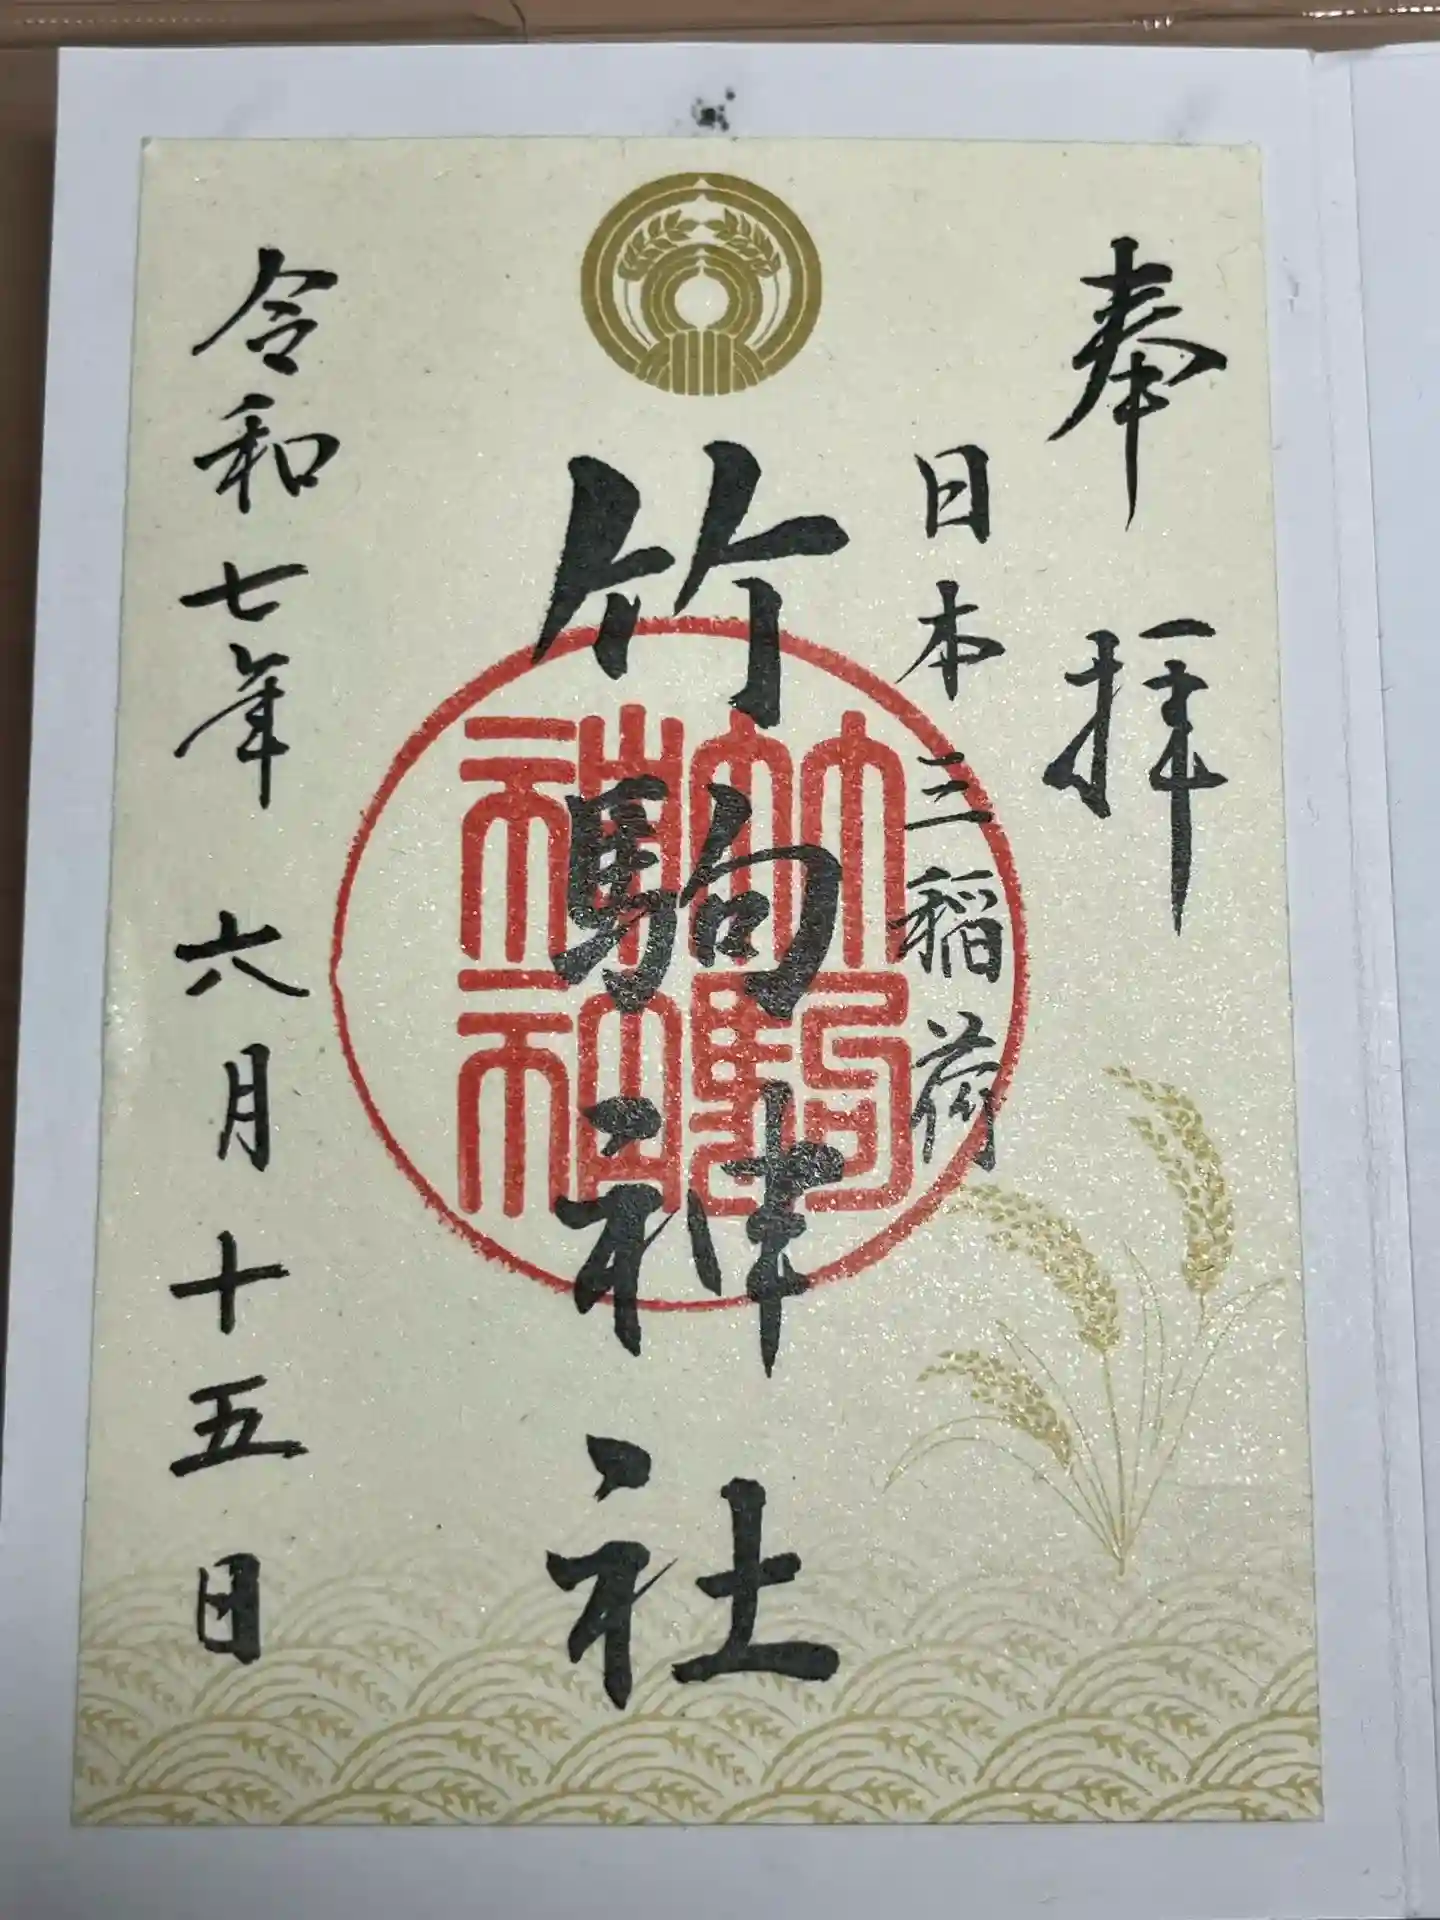 奉拝
日本三稲荷
竹駒神社
竹駒神社
令和七年 六月十五日